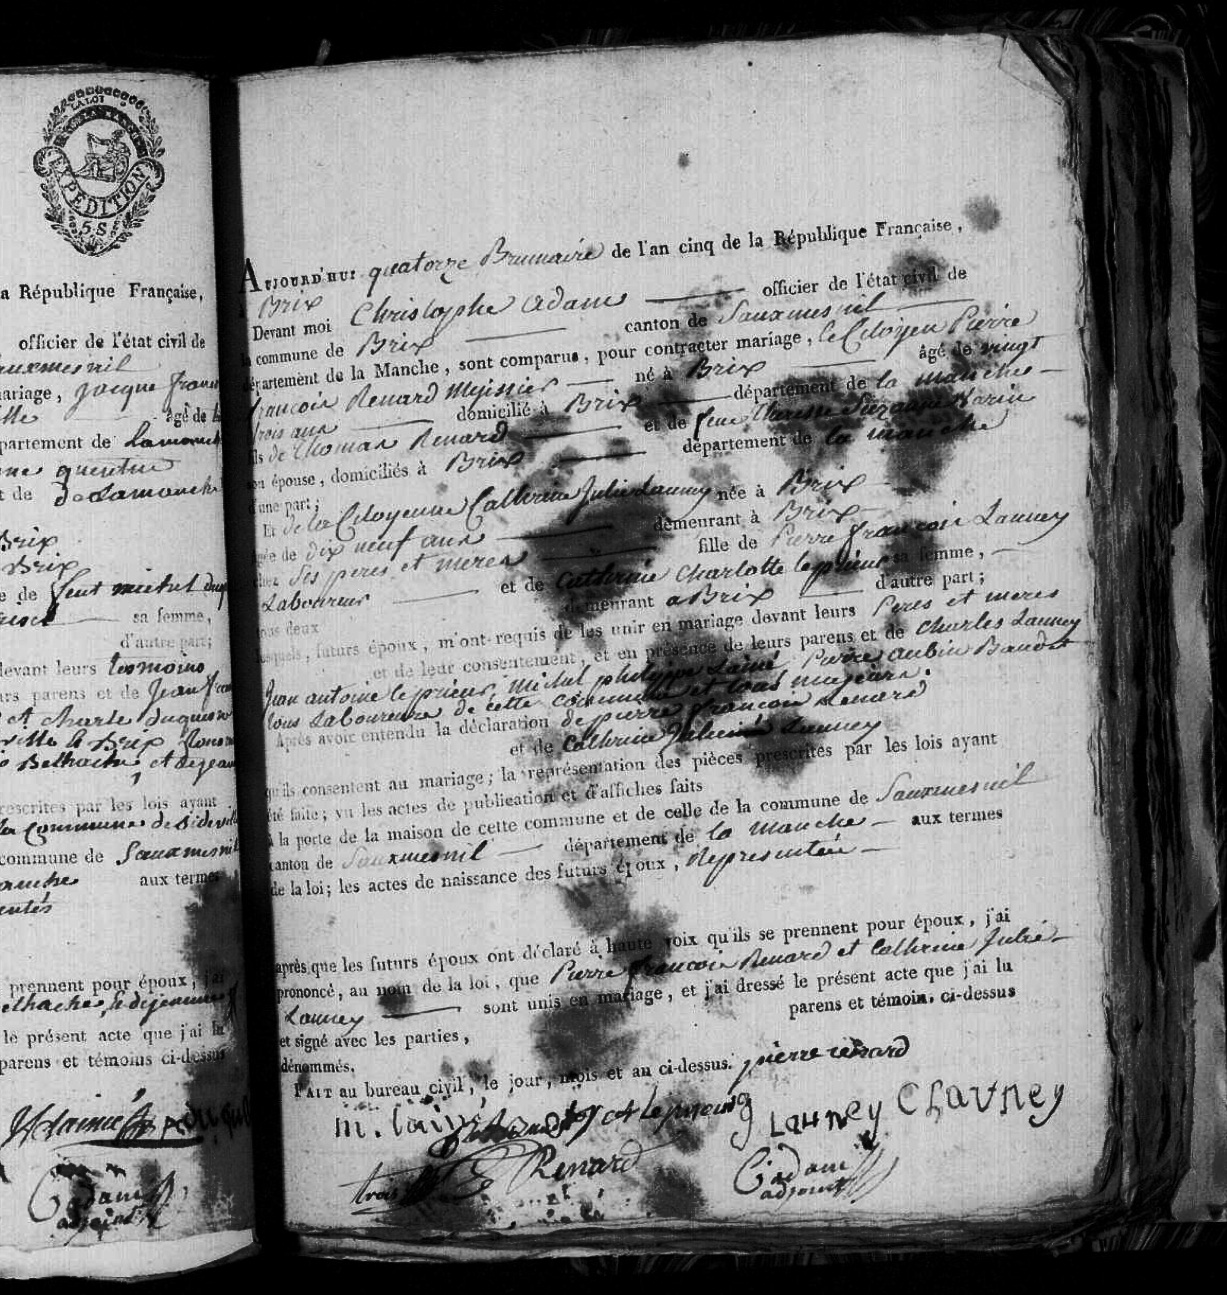 LA LOI
EXPÉDITION
5 S
a République Française,
officier de l'état civil de
ariage, Jacque
âgé de
partement de Lamanche
ne quentin
t de de Lamanche
Brix
Brix
e de feu michel
sa femme,
d'autre part;
devant leurs temoins
rs parens et de Jean
et charle duquesn
ville & Brix
Belhache, et dejean
rescrites par les lois ayant
la commune de Sideville
commune de Sauxmesnil
anche aux termes
entés
prennent pour époux, j'ai
elhache, & dejeanne
le présent acte que j'ai lu
parens et témoins ci-dessus
C adam
adjoint
AUJOURD'HUI quatorze Brumaire de l'an cinq de la République Française,
à Brix
Devant moi Christophe adam officier de l'état civil de
la commune de Brix canton de Sauxmesnil
département de la Manche, sont comparus, pour contracter mariage, le Citoyen Pierre
francoir Renard Meisnier né à Brix âgé de vingt
trois ans domicilié à Brix département de la manche
fils de Thomas Renard et de feue Suzanne Varin
son épouse, domiciliés à Brix département de la manche
d'une part;
Et de la Citoyenne Catherine Julie Launey née à Brix
âgée de dix neuf ans demeurant à Brix
chez Ses peres et meres fille de Pierre francoir Launey
Laboureur et de Catherine Charlotte leprieur sa femme,
tous deux demeurant a Brix d'autre part;
lesquels, futurs époux, m'ont requis de les unir en mariage devant leurs Peres et meres
et de leur consentement, et en présence de leurs parens et de Charles Launey
Jean antoine leprieur, Michel philippe Lainé Pierre aubin Baudet
tous Laboureurs de cette commune et tous majeurs.
Après avoir entendu la déclaration de pierre francoir Renard
et de Catherine Julie Launey
qu'ils consentent au mariage; la représentation des pièces prescrites par les lois ayant
été faite; vu les actes de publication et d'affiches faits
à la porte de la maison de cette commune et de celle de la commune de Sauxmesnil
canton de Sauxmesnil département de la manche aux termes
de la loi; les actes de naissance des futurs époux, Representée
après que les futurs époux ont déclaré à haute voix qu'ils se prennent pour époux, j'ai
prononcé, au nom de la loi, que Pierre francoir Renard et Catherine Julie
Launey sont unis en mariage, et j'ai dressé le présent acte que j'ai lu
et signé avec les parties, parens et témoin. ci-dessus
dénommés.
FAIT au bureau civil, le jour, mois et an ci-dessus. pierre renard
m. lainé leprieur g Launey C Launey
trois Renard C adam
adjoint